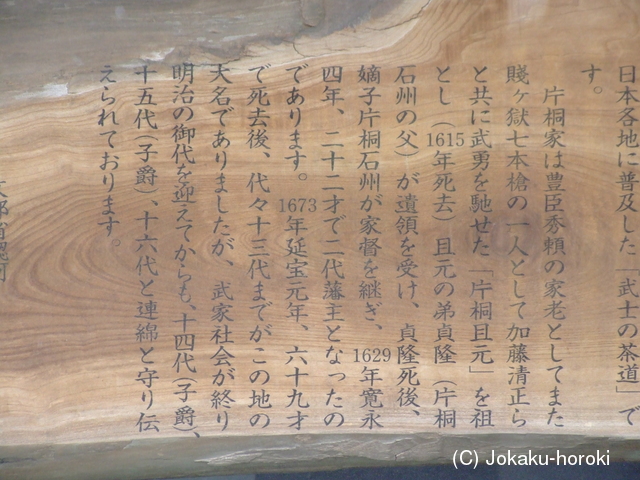 日本各地に普及した「武士の茶道」で
す。
片桐家は豊臣秀頼の家老としてまた
賤ヶ獄七本槍の一人として加藤清正ら
と共に武勇を馳せた「片桐且元」を祖
とし（1615年死去）且元の弟貞隆（片桐
石州の父）が遺領を受け、貞隆死後、
嫡子片桐石州が家督を継ぎ、1629年寛永
四年、二十二才で二代藩主となったの
であります。1673年延宝元年、六十九才
で死去後、代々十三代までがこの地の
大名でありましたが、武家社会が終り
明治の御代を迎えてからも、十四代（子爵）、
十五代（子爵）、十六代と連綿と守り伝
えられております。
(C) Jokaku-horoki